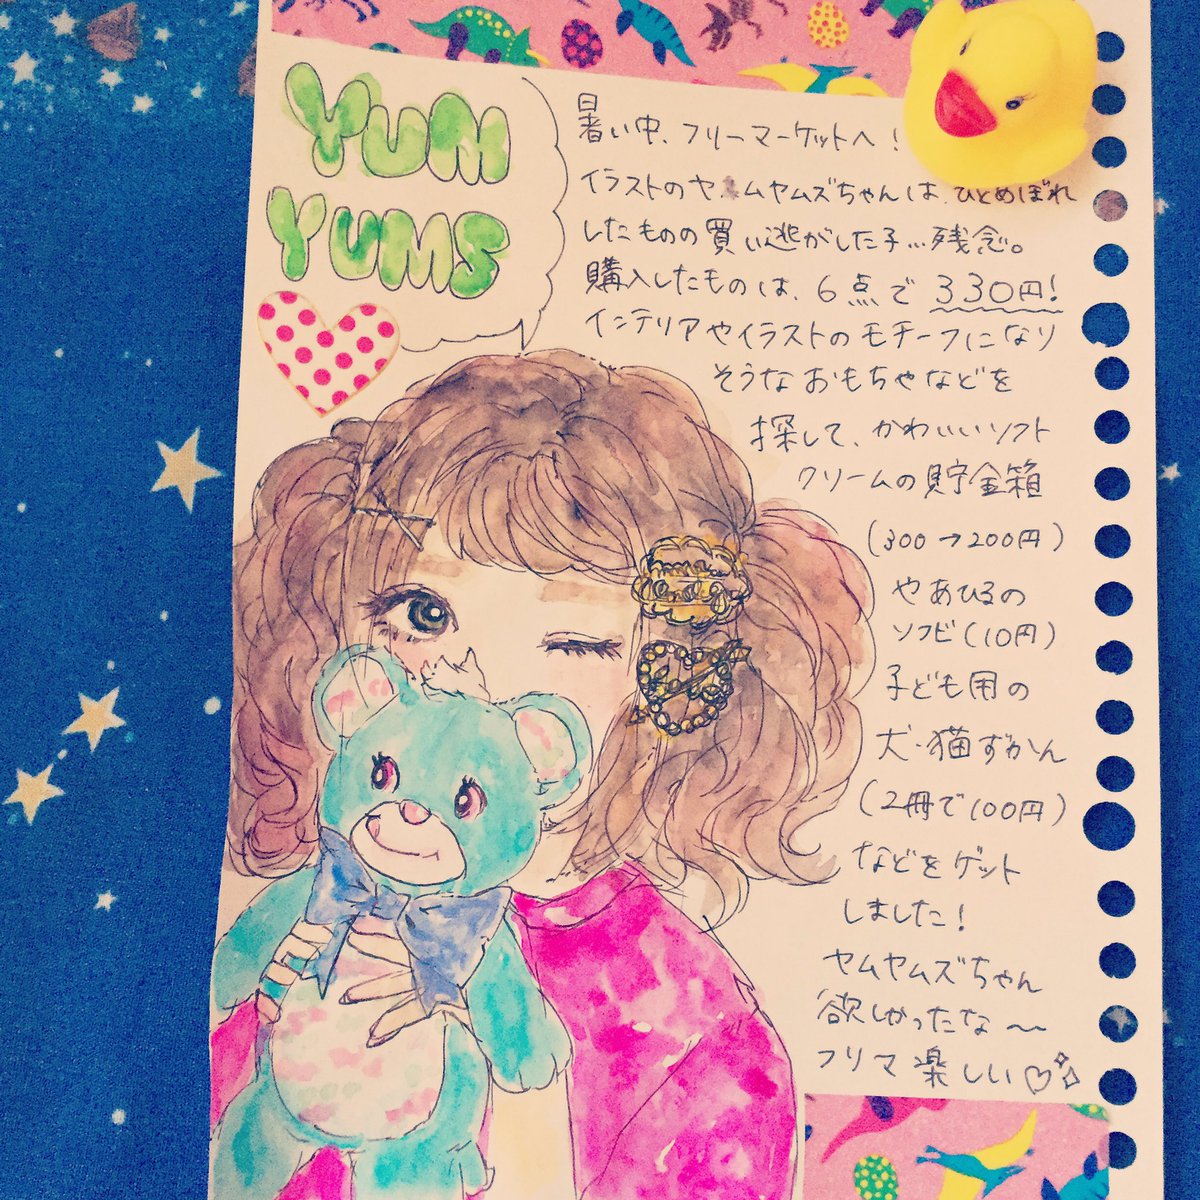 YUM
YUMS
暑い中、フリーマーケットへ!
イラストのヤムヤムズちゃんは、ひとめぼれ
したものの買い逃がした子…残念。
購入したものは、6点で330円!
インテリアやイラストのモチーフになり
そうなおもちゃなどを
探して、かわいいソフト
クリームの貯金箱
(300→200円)
やあひるの
ソフビ(10円)
子ども用の
犬・猫ずかん
(2冊で100円)
などをゲット
しました!
ヤムヤムズちゃん
欲しかったな〜
フリマ楽しい♡